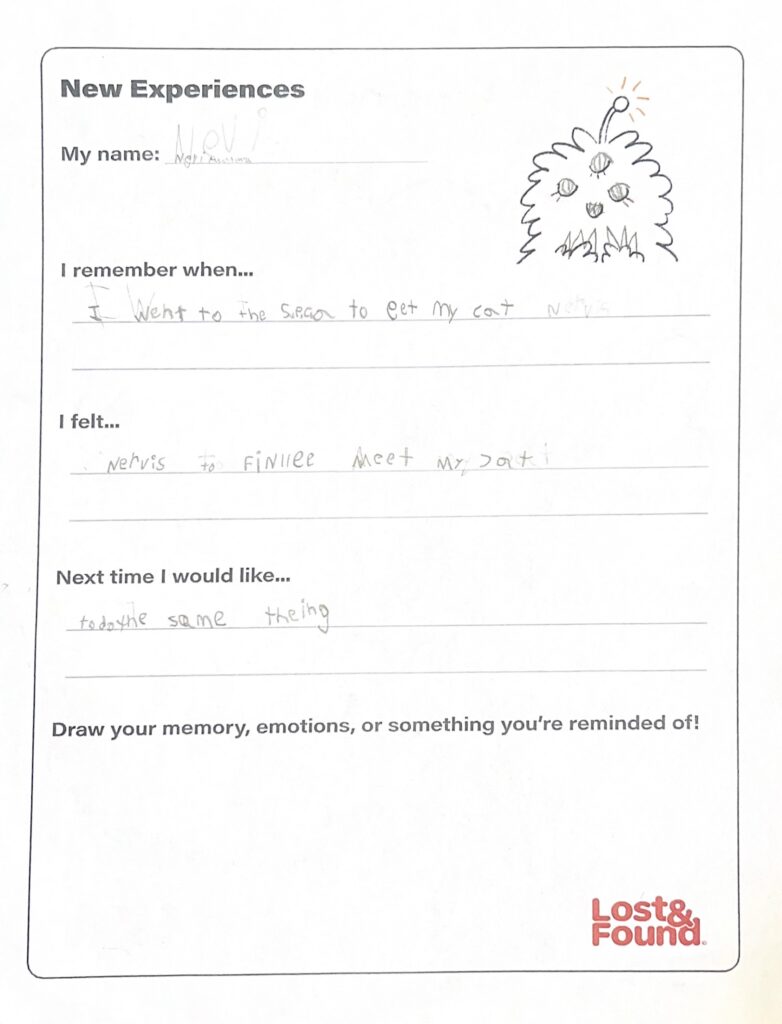 New Experiences
My name: Nevi
I remember when...
I Went to the to get my cat Nervis
I felt...
Nervis to Finllee Meet My cat
Next time I would like...
to do the same theing
Draw your memory, emotions, or something you're reminded of!
Lost&
Found